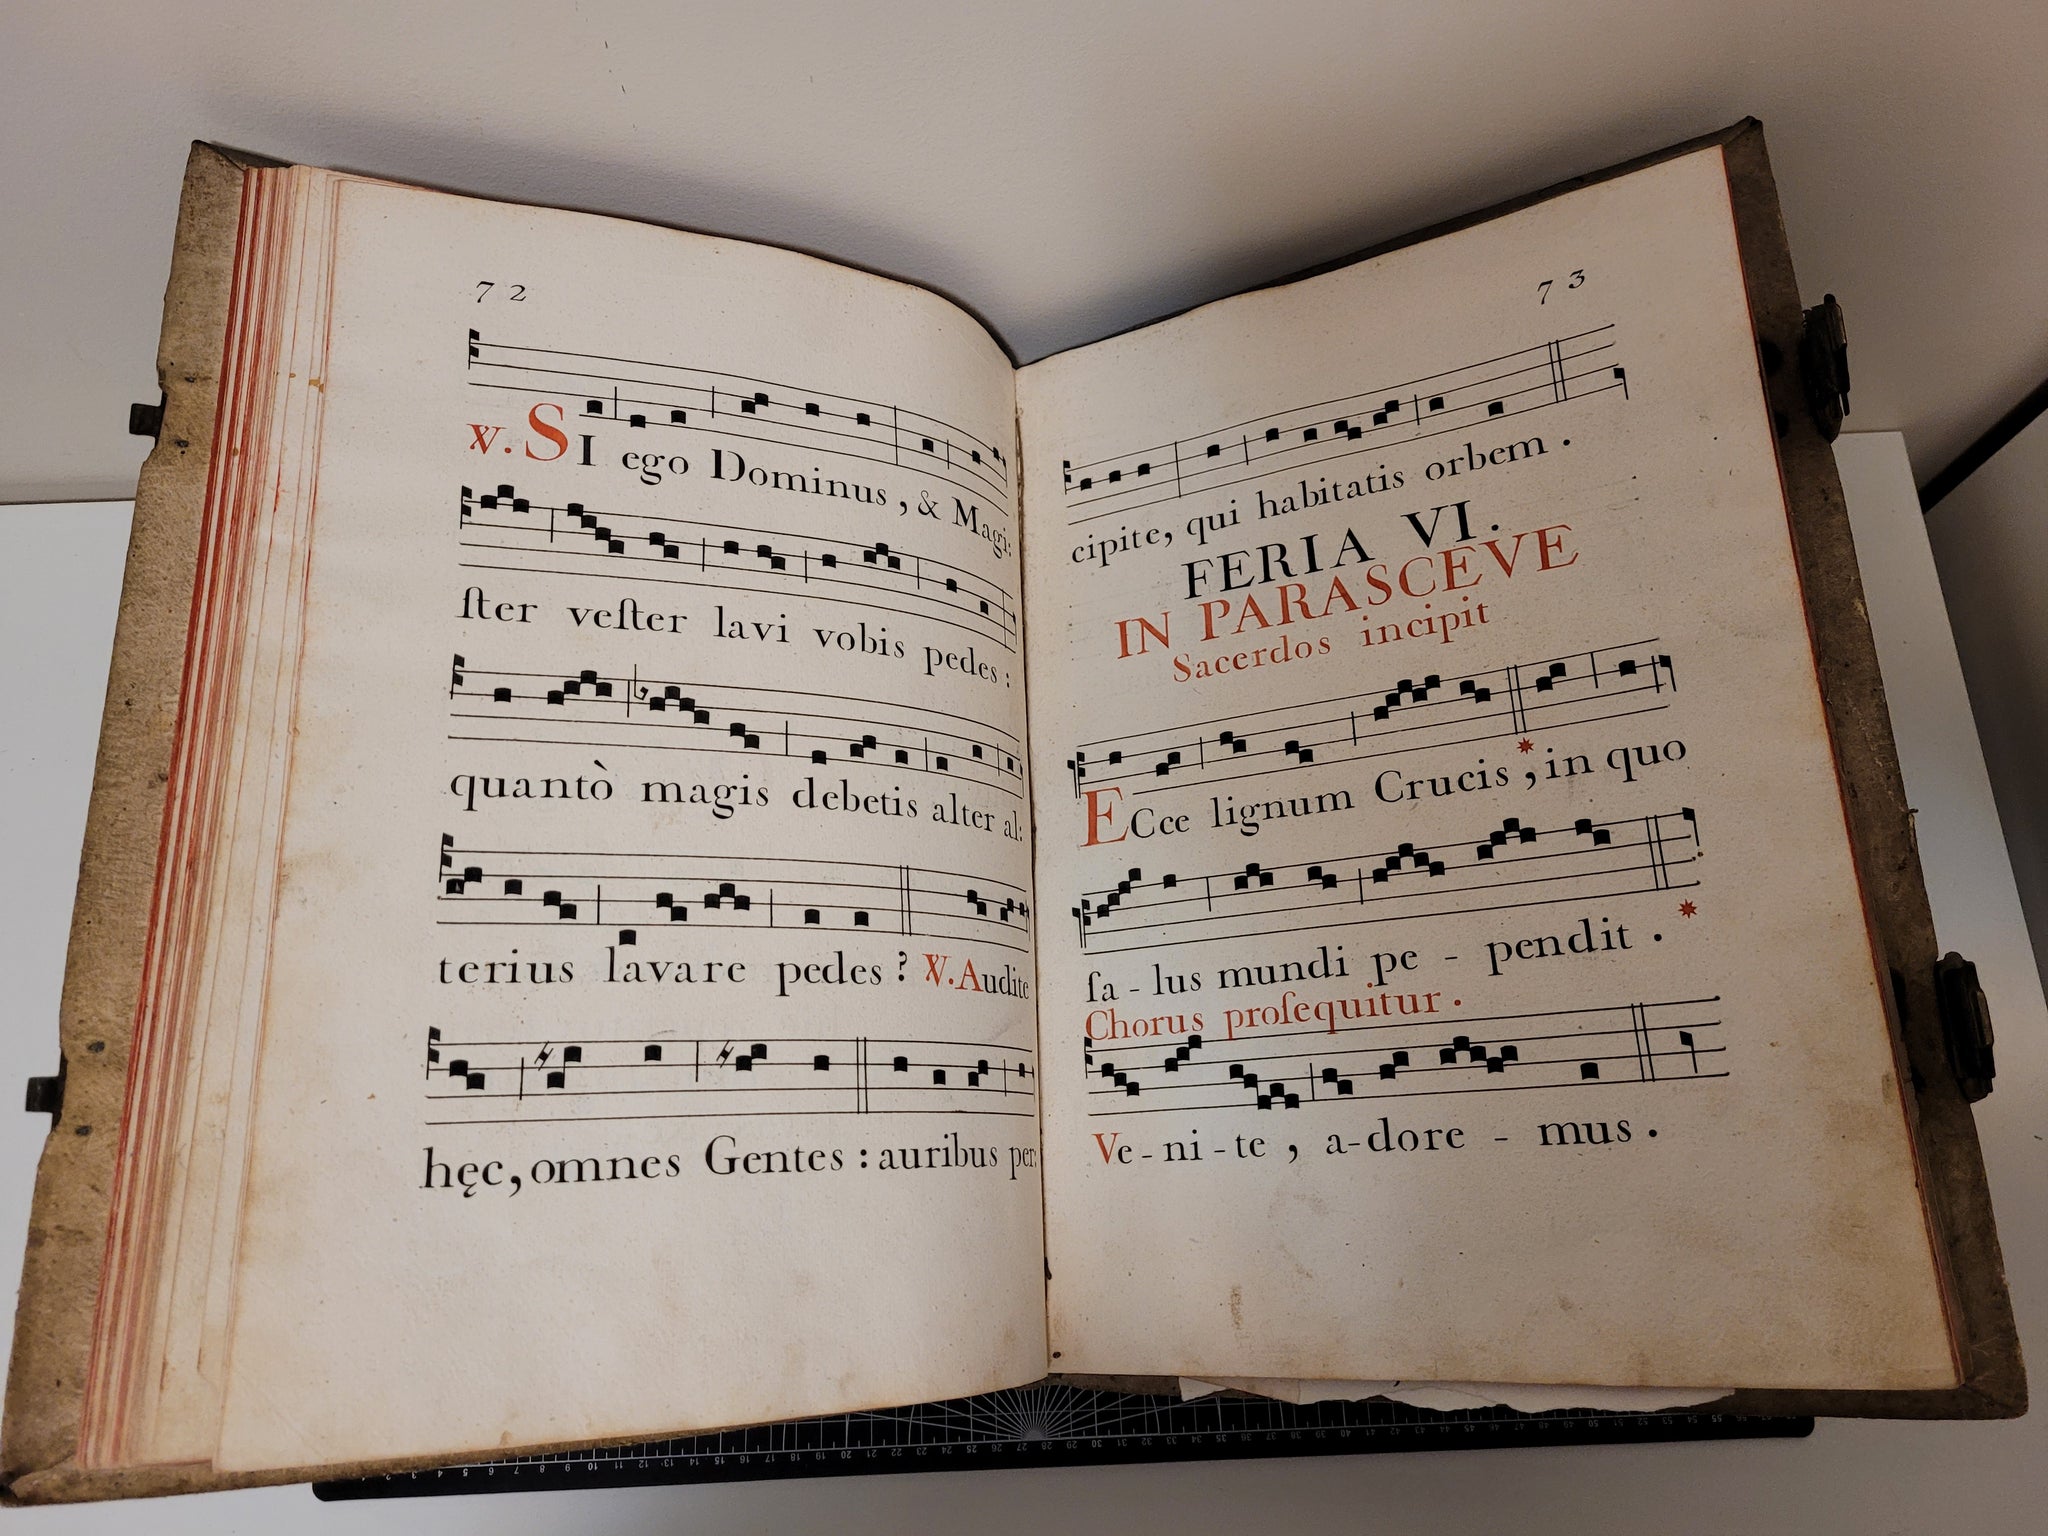 72
℣. SI ego Dominus, & Magi:
ſter veſter lavi vobis pedes:
quantò magis debetis alter al:
terius lavare pedes? ℣. Audite
hęc, omnes Gentes: auribus per:
73
cipite, qui habitatis orbem.
FERIA VI.
IN PARASCEVE
Sacerdos incipit
ECce lignum Crucis, * in quo
ſa-lus mundi pe-pendit. *
Chorus proſequitur.
Ve-ni-te, a-dore-mus.